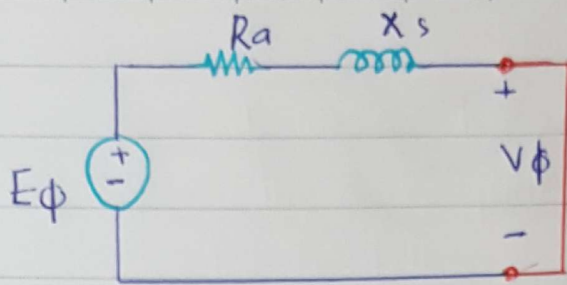 Ra Xs
+
+
-
Eφ
Vφ
-